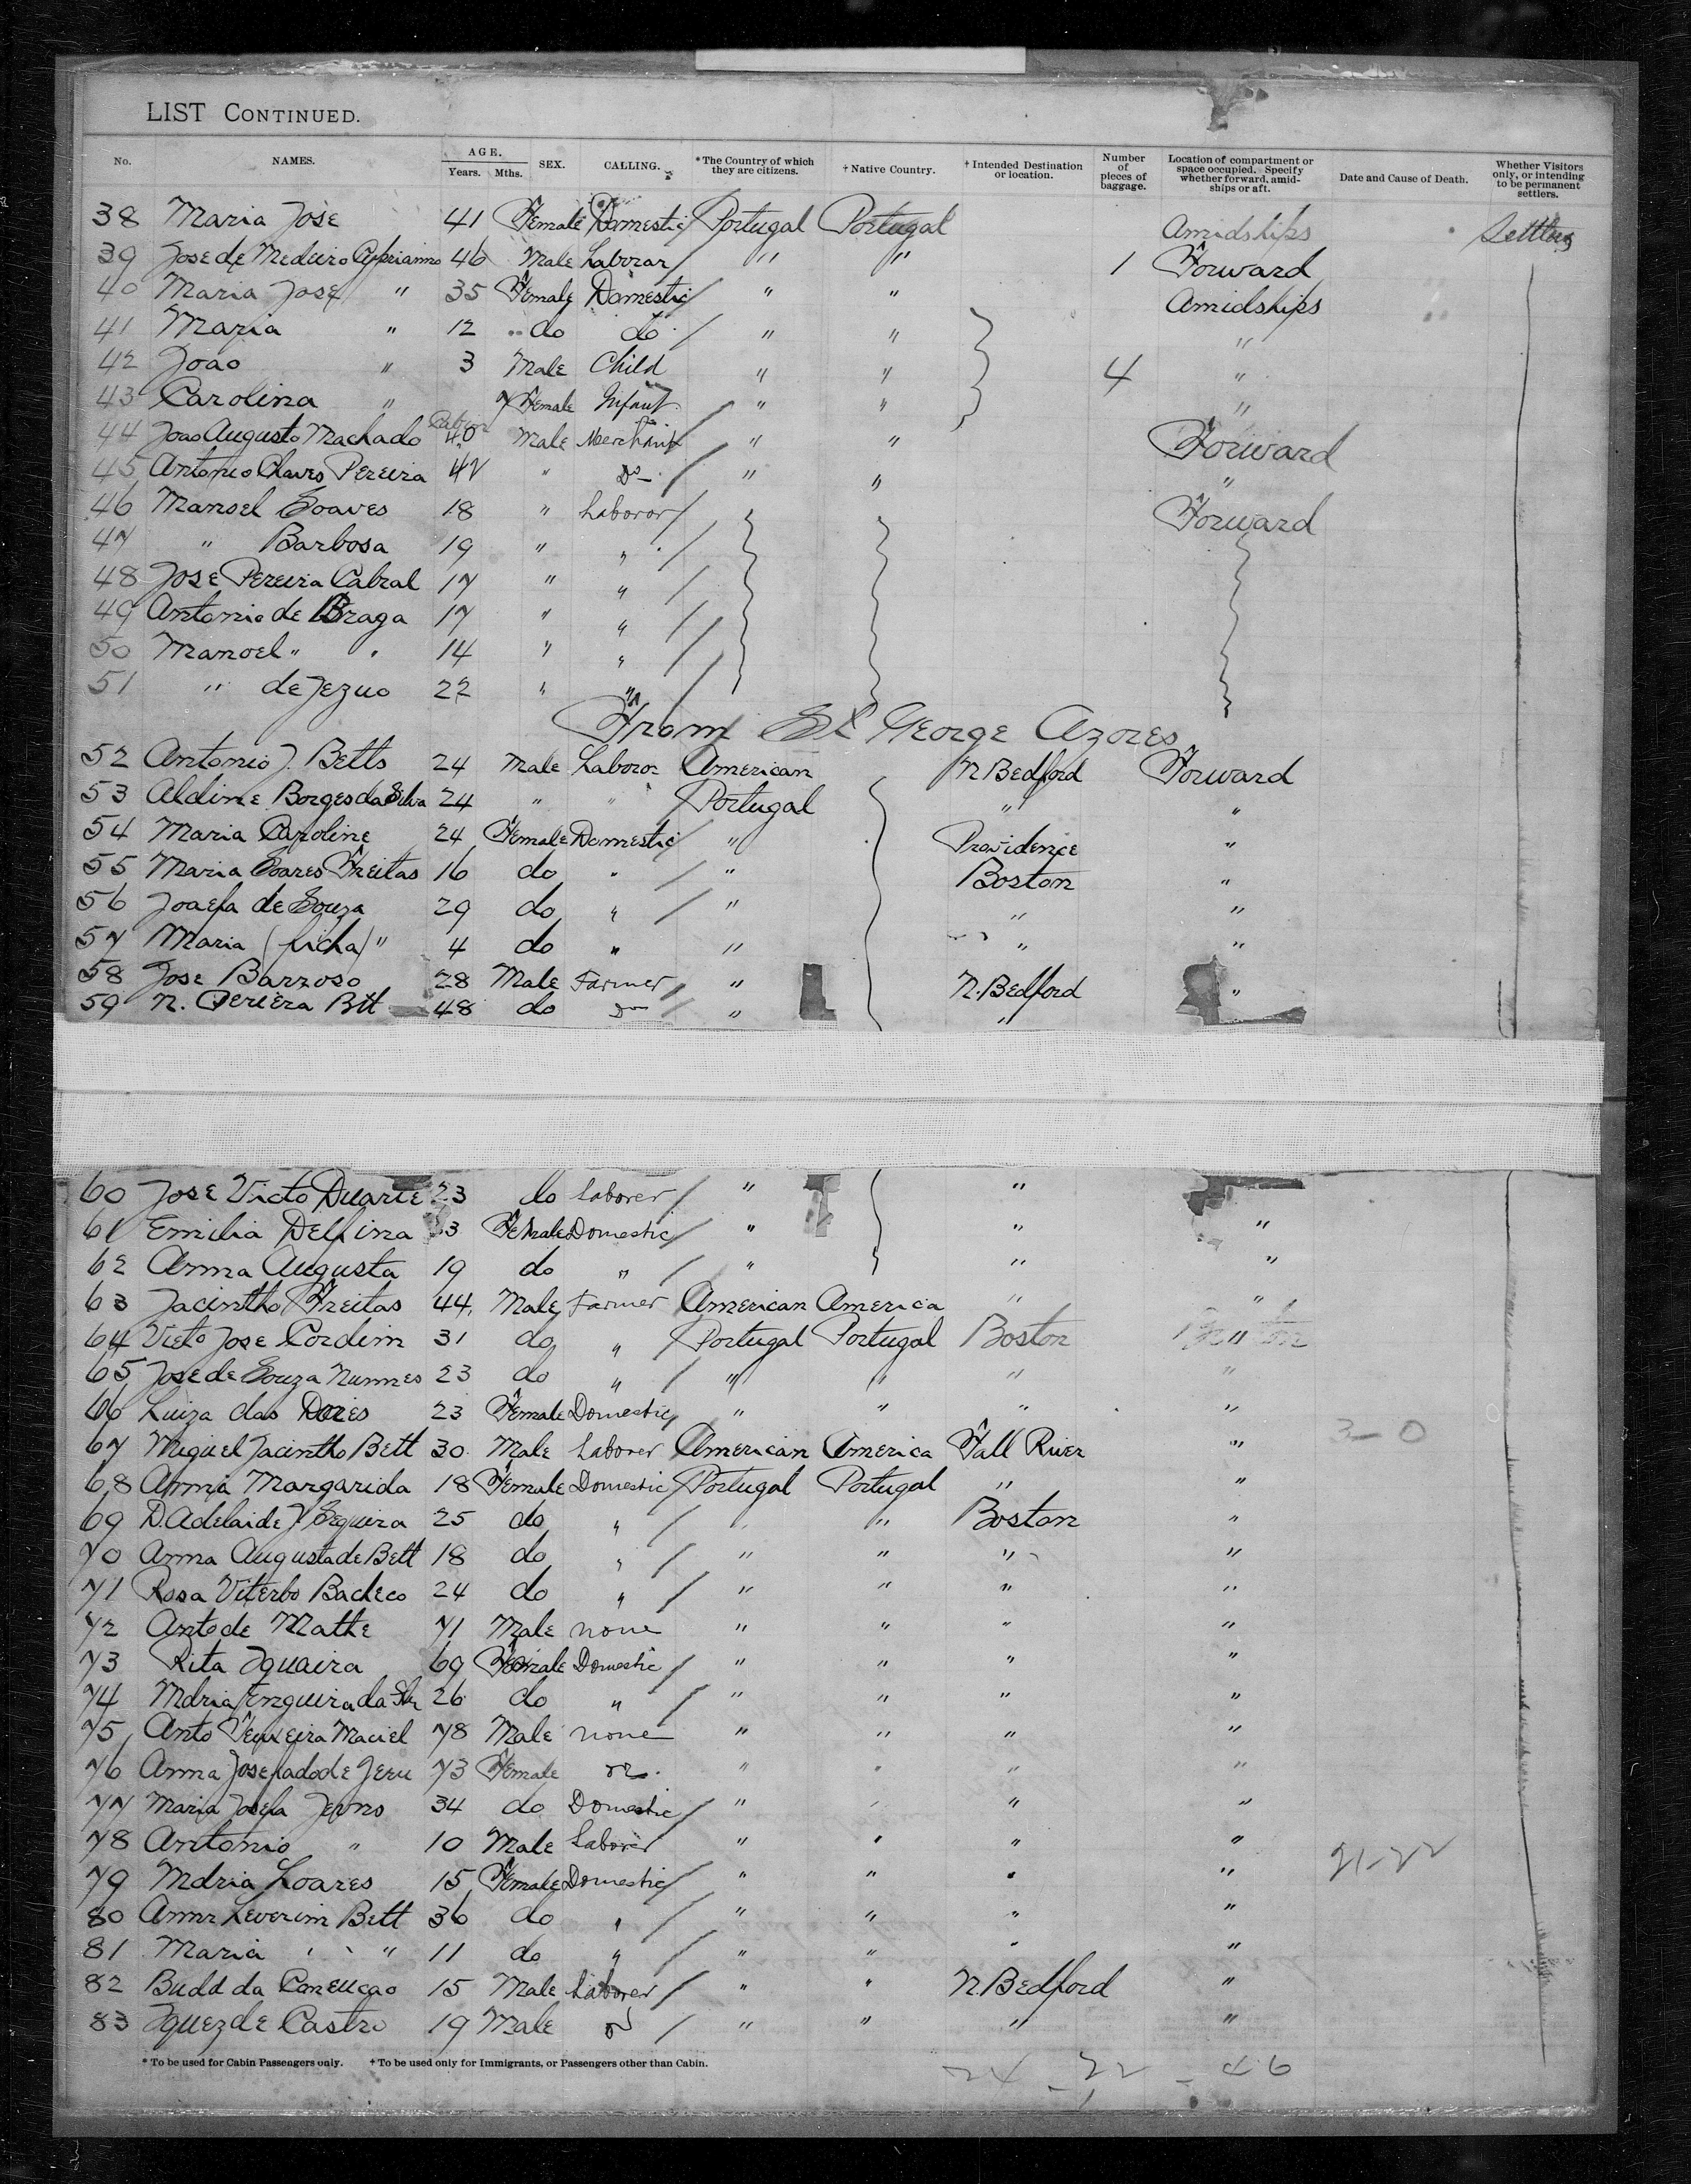 LIST CONTINUED.
No. NAMES. AGE. Years. Mths. SEX. CALLING. *The Country of which they are citizens. †Native Country. †Intended Destination or location. Number of pieces of baggage. Location of compartment or space occupied. Specify whether forward, amidships or aft. Date and Cause of Death. Whether Visitors only, or intending to be permanent settlers.
38 Maria Jose 41 Female Domestic Portugal Portugal Amidships Settlers
39 Jose de Medeiro 46 Male Laborar " " 1 Forward
40 Maria Jose " 35 Female Domestic " " Amidships
41 Maria " 12 do do " " "
42 Joao " 3 Male Child " " 4 "
43 Carolina " 7 Female Infant " " "
44 Joao Augusto Machado 40 Male Merchant " " Forward
45 Antonio Chaves Pereira 42 " Do " " "
46 Manoel Soares 18 " Laboror Forward
47 " Barbosa 19 " "
48 Jose Pereira Cabral 17 " "
49 Antonio de Braga 17 " "
50 Manoel " " 14 " "
51 " de Jezuo 22 " "
From St George Azores
52 Antonio J. Betts 24 Male Laboror American N Bedford Forward
53 Aldine Borges da Silva 24 " " Portugal " "
54 Maria Caroline 24 Female Domestic " Providence "
55 Maria Soares Freitas 16 do " " Boston "
56 Joaefa de Souza 29 do " " " "
57 Maria (ficha) " 4 do " " " "
58 Jose Barroso 28 Male Farmer " N. Bedford "
59 N. Periera Btt 48 do Do " "
60 Jose Victo Duarte 23 do Laborer " "
61 Emilia Delfina 33 Female Domestic " " "
62 Anna Augusta 19 do " " " "
63 Jacintho Freitas 44 Male Farmer American America " "
64 Victo Jose Cordim 31 do " Portugal Portugal Boston "
65 Jose de Souza Nunnes 23 do " " " " "
66 Luiza das Dores 23 Female Domestic " " " "
67 Miguel Jacintho Bett 30 Male Laborer American America Fall River " 3-0
68 Anna Margarida 18 Female Domestic Portugal Portugal " "
69 D. Adelaide J Sequira 25 do " " " Boston "
70 Anna Augusta de Bett 18 do " " " " "
71 Rosa Viterbo Bacheco 24 do " " " " "
72 Anto de Mathe 71 Male none " " " "
73 Rita Iguaira 69 Female Domestic " " " "
74 Mdria da 26 do " " " " "
75 Anto Teixeira Maciel 78 Male none " " " "
76 Anna 73 Female " " " "
77 Maria Josefa 34 do Domestic " " " "
78 Antonio " 10 Male Laborer " " " " 21-22
79 Mdria Loares 15 Female Domestic " " " "
80 Anna Leverim Bett 36 do " " " " "
81 Maria " " " 11 do " " " " "
82 Budd da Coneucao 15 Male Laborer " " N. Bedford "
83 Iguez de Castro 19 Male do " " " "
* To be used for Cabin Passengers only. † To be used only for Immigrants, or Passengers other than Cabin.
24 - 22 - 46